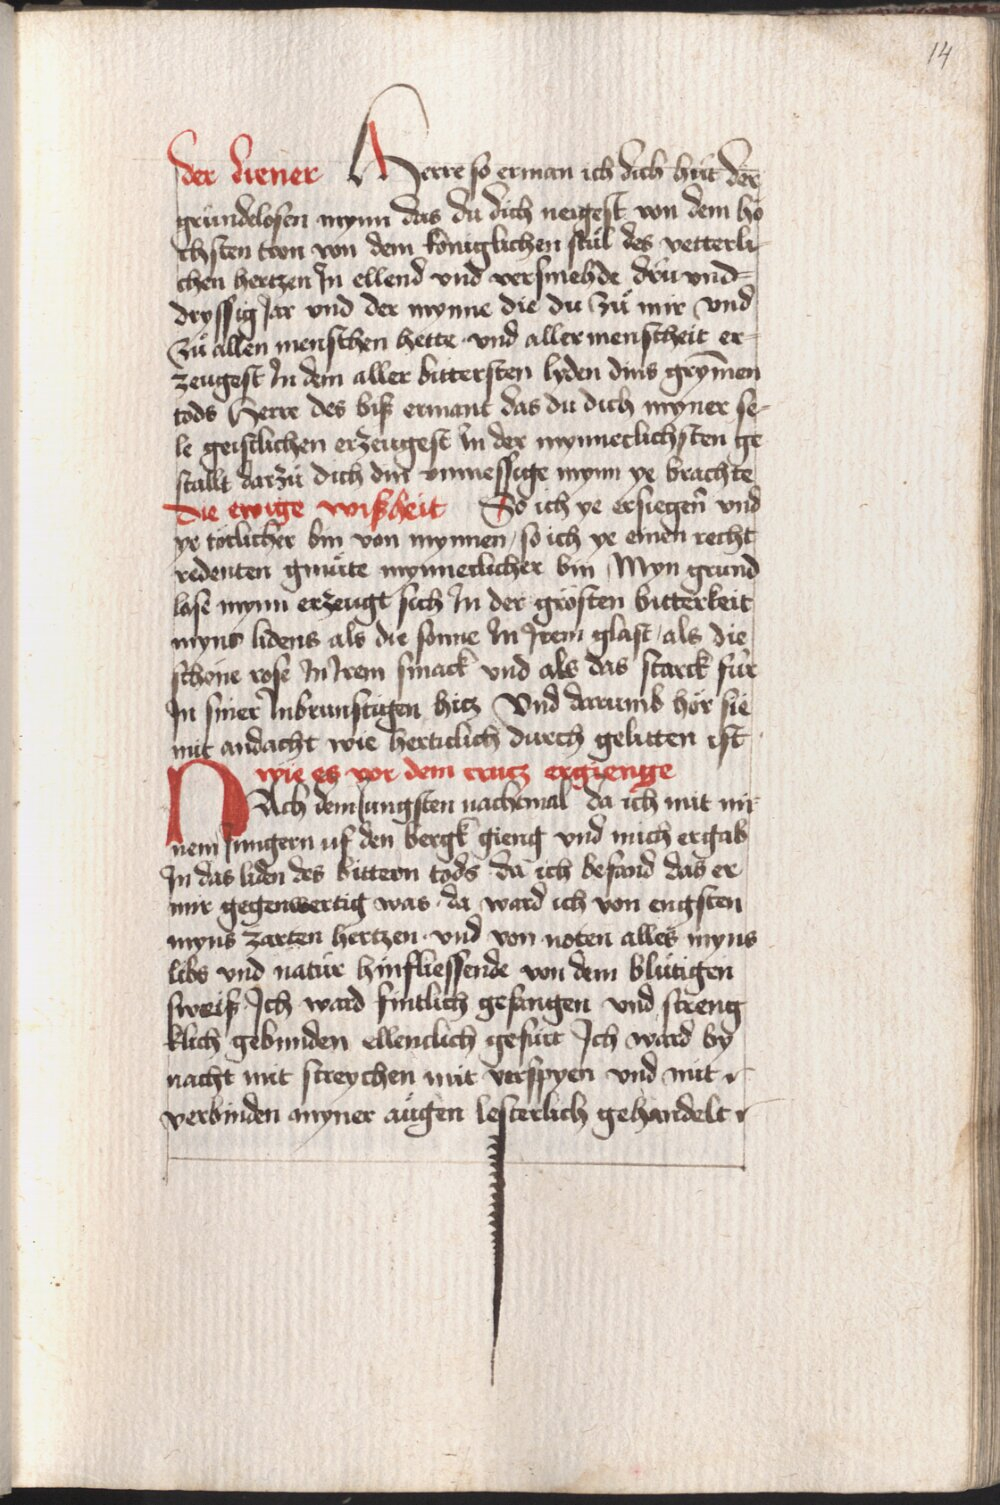 14
der diener Herre so erman ich dich hut der
grundelosen mynn das du dich neigest von dem ho
chsten tron von dem königlichen stůl des vetterli
chen hertzen In ellend vnd versmehde drü vnd=
dryssig Jar vnd der mynne die du zů mir vnd
zů allen menschen hette · vnd aller menscheit er=
zeugest In dem aller bittersten lyden dins grym̄en
tods Herre des biß ermant das du dich myner se=
le geistlichen erzeugest In der mynneclichsten ge
stallt darzů dich din vnmessige mynn ye brachte
Die ewige wißheit So ich ye ersiegen̄ vnd
ye tötlicher bin von mynnen / so ich ye einen recht
redenten gmüte mynneclicher bin / Myn grund
lose mynn erzeugt sich In der grösten bitterkeit
myns lidens als die sonne In Irem glast / als die
schöne rose In Irem smack vnd als das starck für
In siner Inbrunstigen hitz Vnd darumb hör sie
mit andacht wie hertzlich durch gelitten ist
wie es vor dem crutz ergienge
NAch dem Jungsten nachtmal da ich mit mi
nem Jungern vf den bergk gieng vnd mich ergab
In das liden des bittern tods da ich befand das er
mir gegenwertig was · da ward ich von engsten
myns zarten hertzen · vnd von noten alles myns
libs vnd natur hinfliessende von dem blůtigen
sweiß Ich ward fintlich gefangen vnd streng
klich gebunden ellenclich gefürt Ich ward by
nacht mit streychen mit verspyen vnd mit
verbinden myner augen lesterlich gehandelt